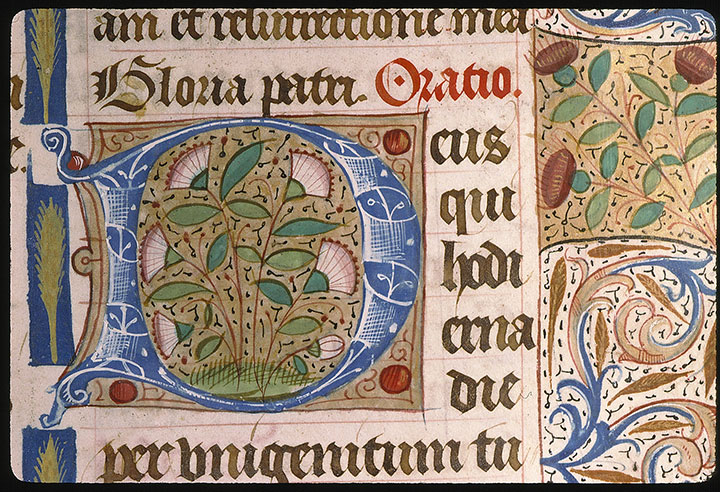 am et resurrectione mea
Gloria patri. Oratio.
Deus
qui
hodi
erna
die
per unigenitum tu